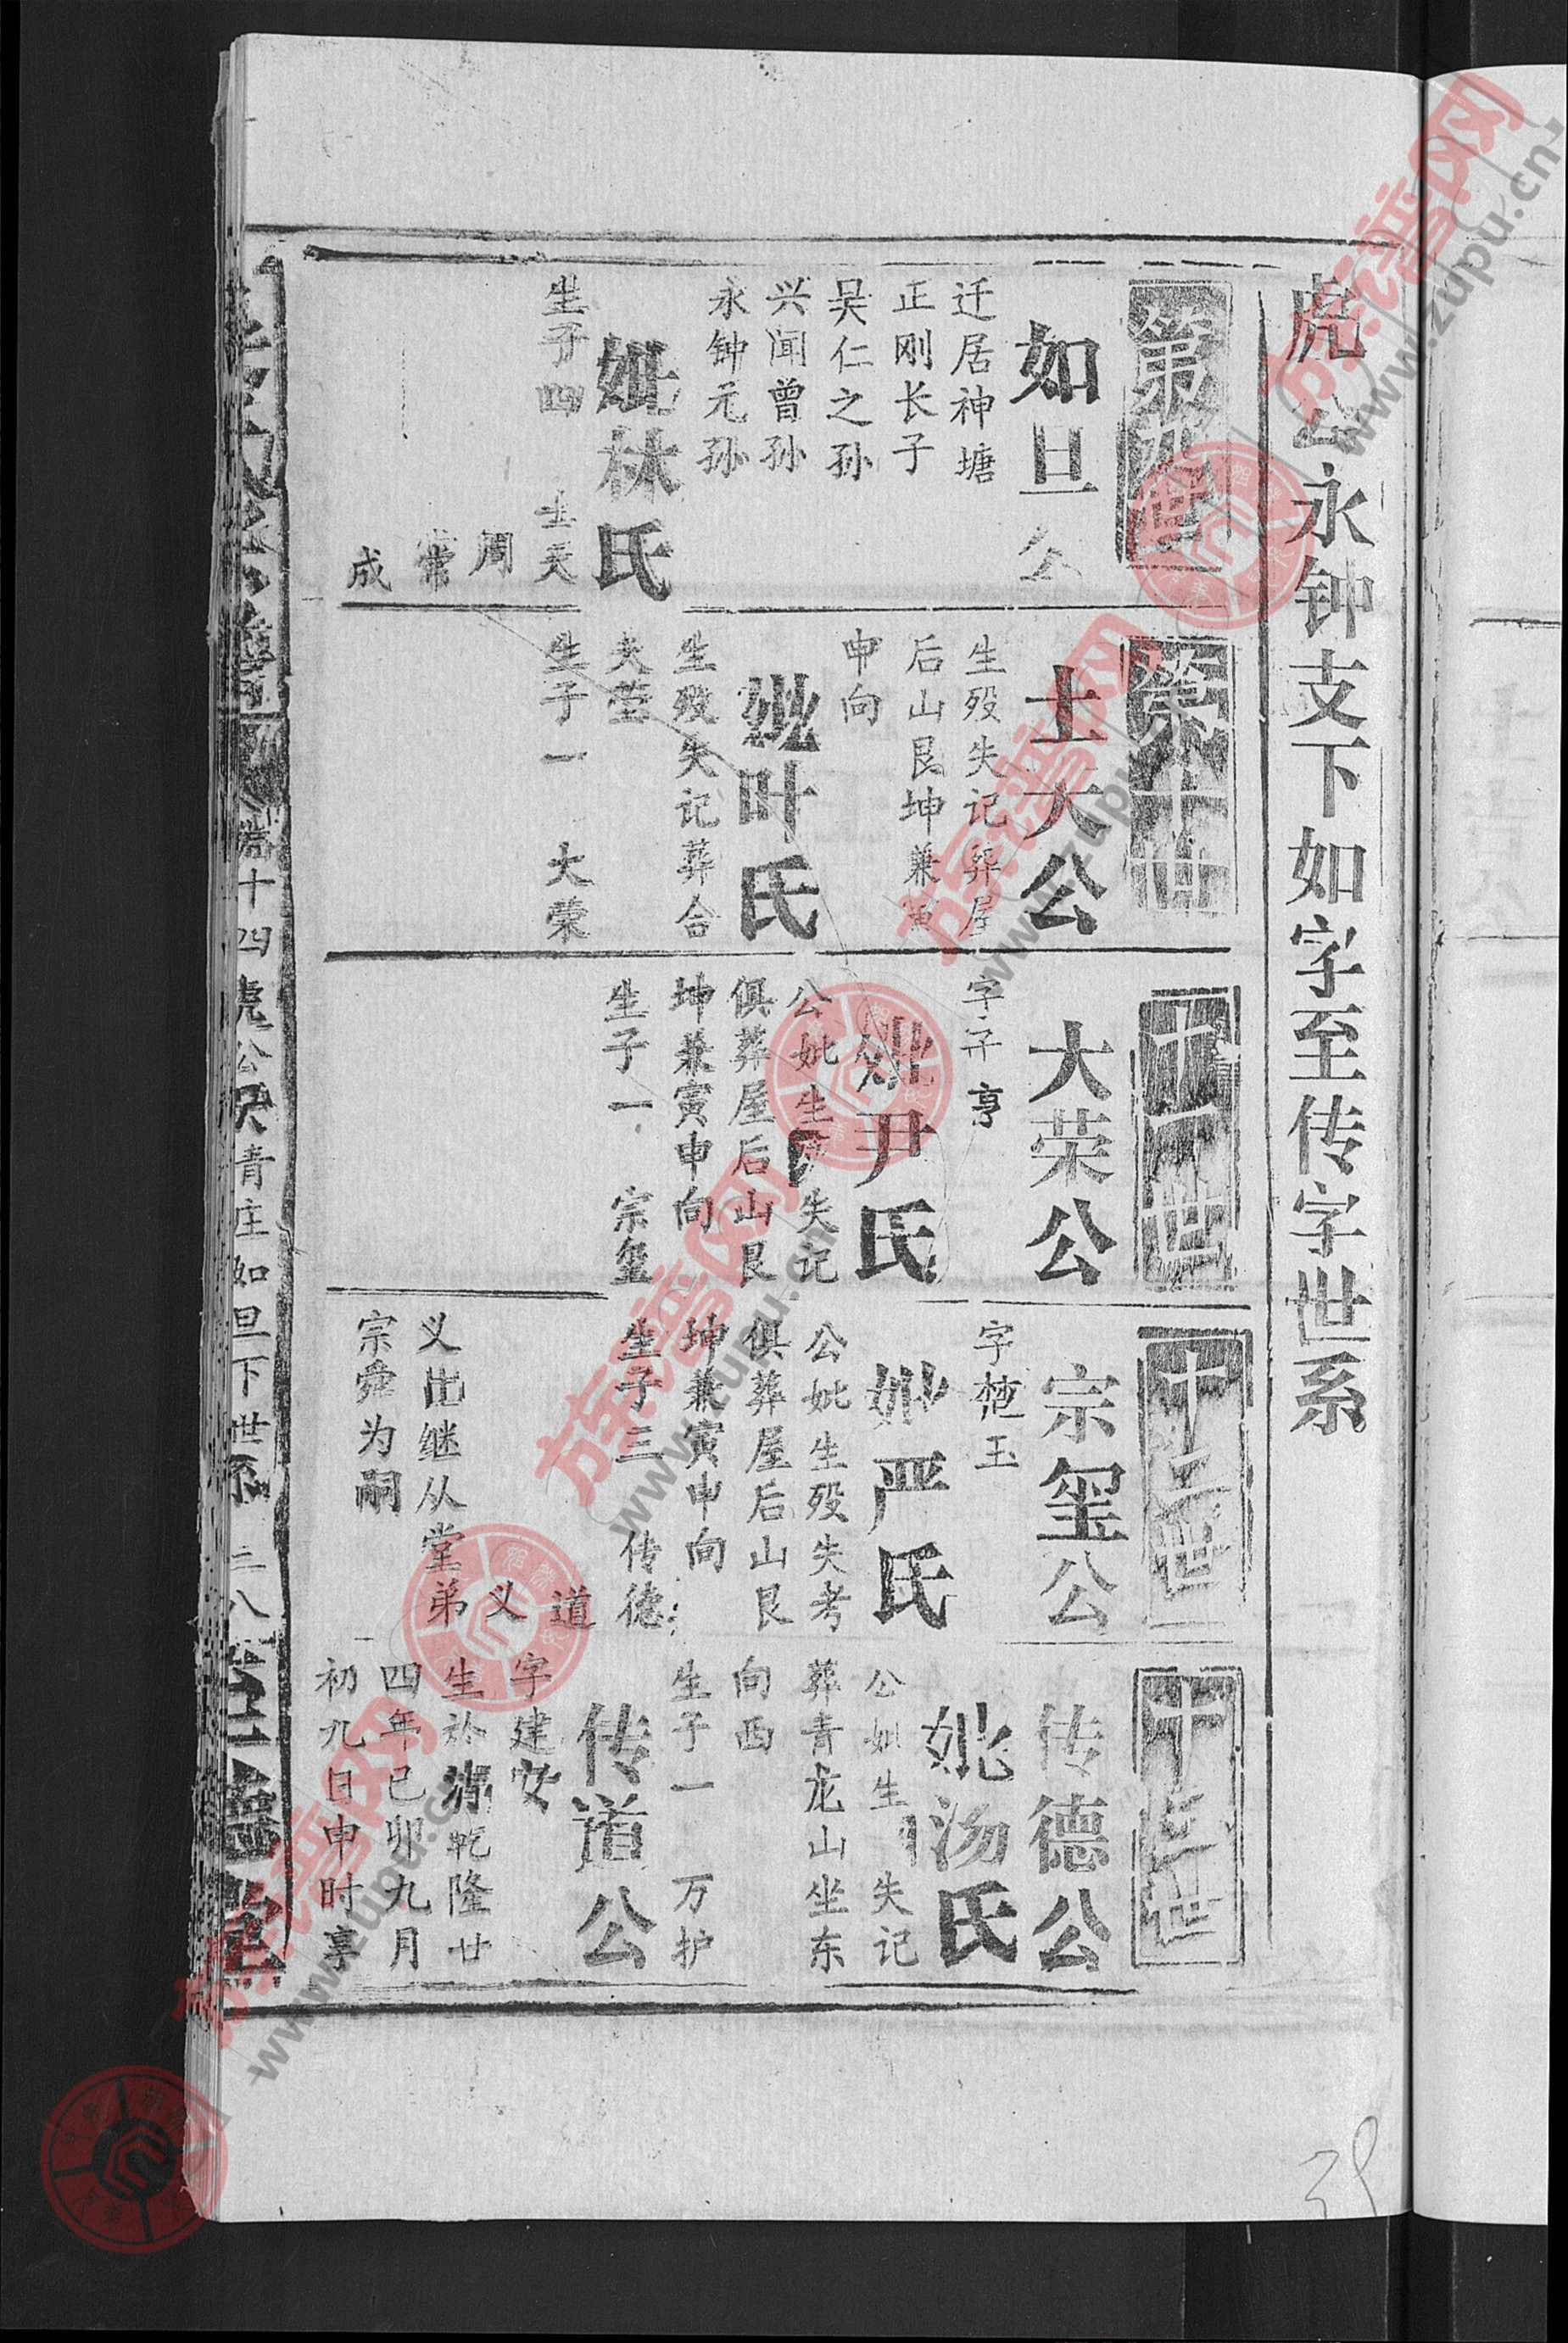 虎公永钟支下如字至传字世系
第九世
如旦公
迁居神塘
正刚长子
吴仁之孙
兴闻曾孙
永钟元孙
妣林氏
生子四 士大
周
常
成
第十世
士大公
生殁失记葬屋
后山艮坤兼寅
申向
妣叶氏
生殁失记葬合
夫茔
生子一 大荣
十一世
大荣公
字子亨
妣尹氏
公妣生殁失记
俱葬屋后山艮
坤兼寅申向
生子一 宗玺
十二世
宗玺公
字楚玉
妣严氏
公妣生殁失考
俱葬屋后山艮
坤兼寅申向
生子三 传德
道
义
义出继从堂弟
宗舜为嗣
十三世
传德公
妣汤氏
公妣生 失记
葬青龙山坐东
向西
生子一 万护
传道公
字建安
生于清乾隆廿
四年己卯九月
初九日申时享
卷十四 虎公 青庄如旦下世系 二八
www.zupu.cn
族谱网